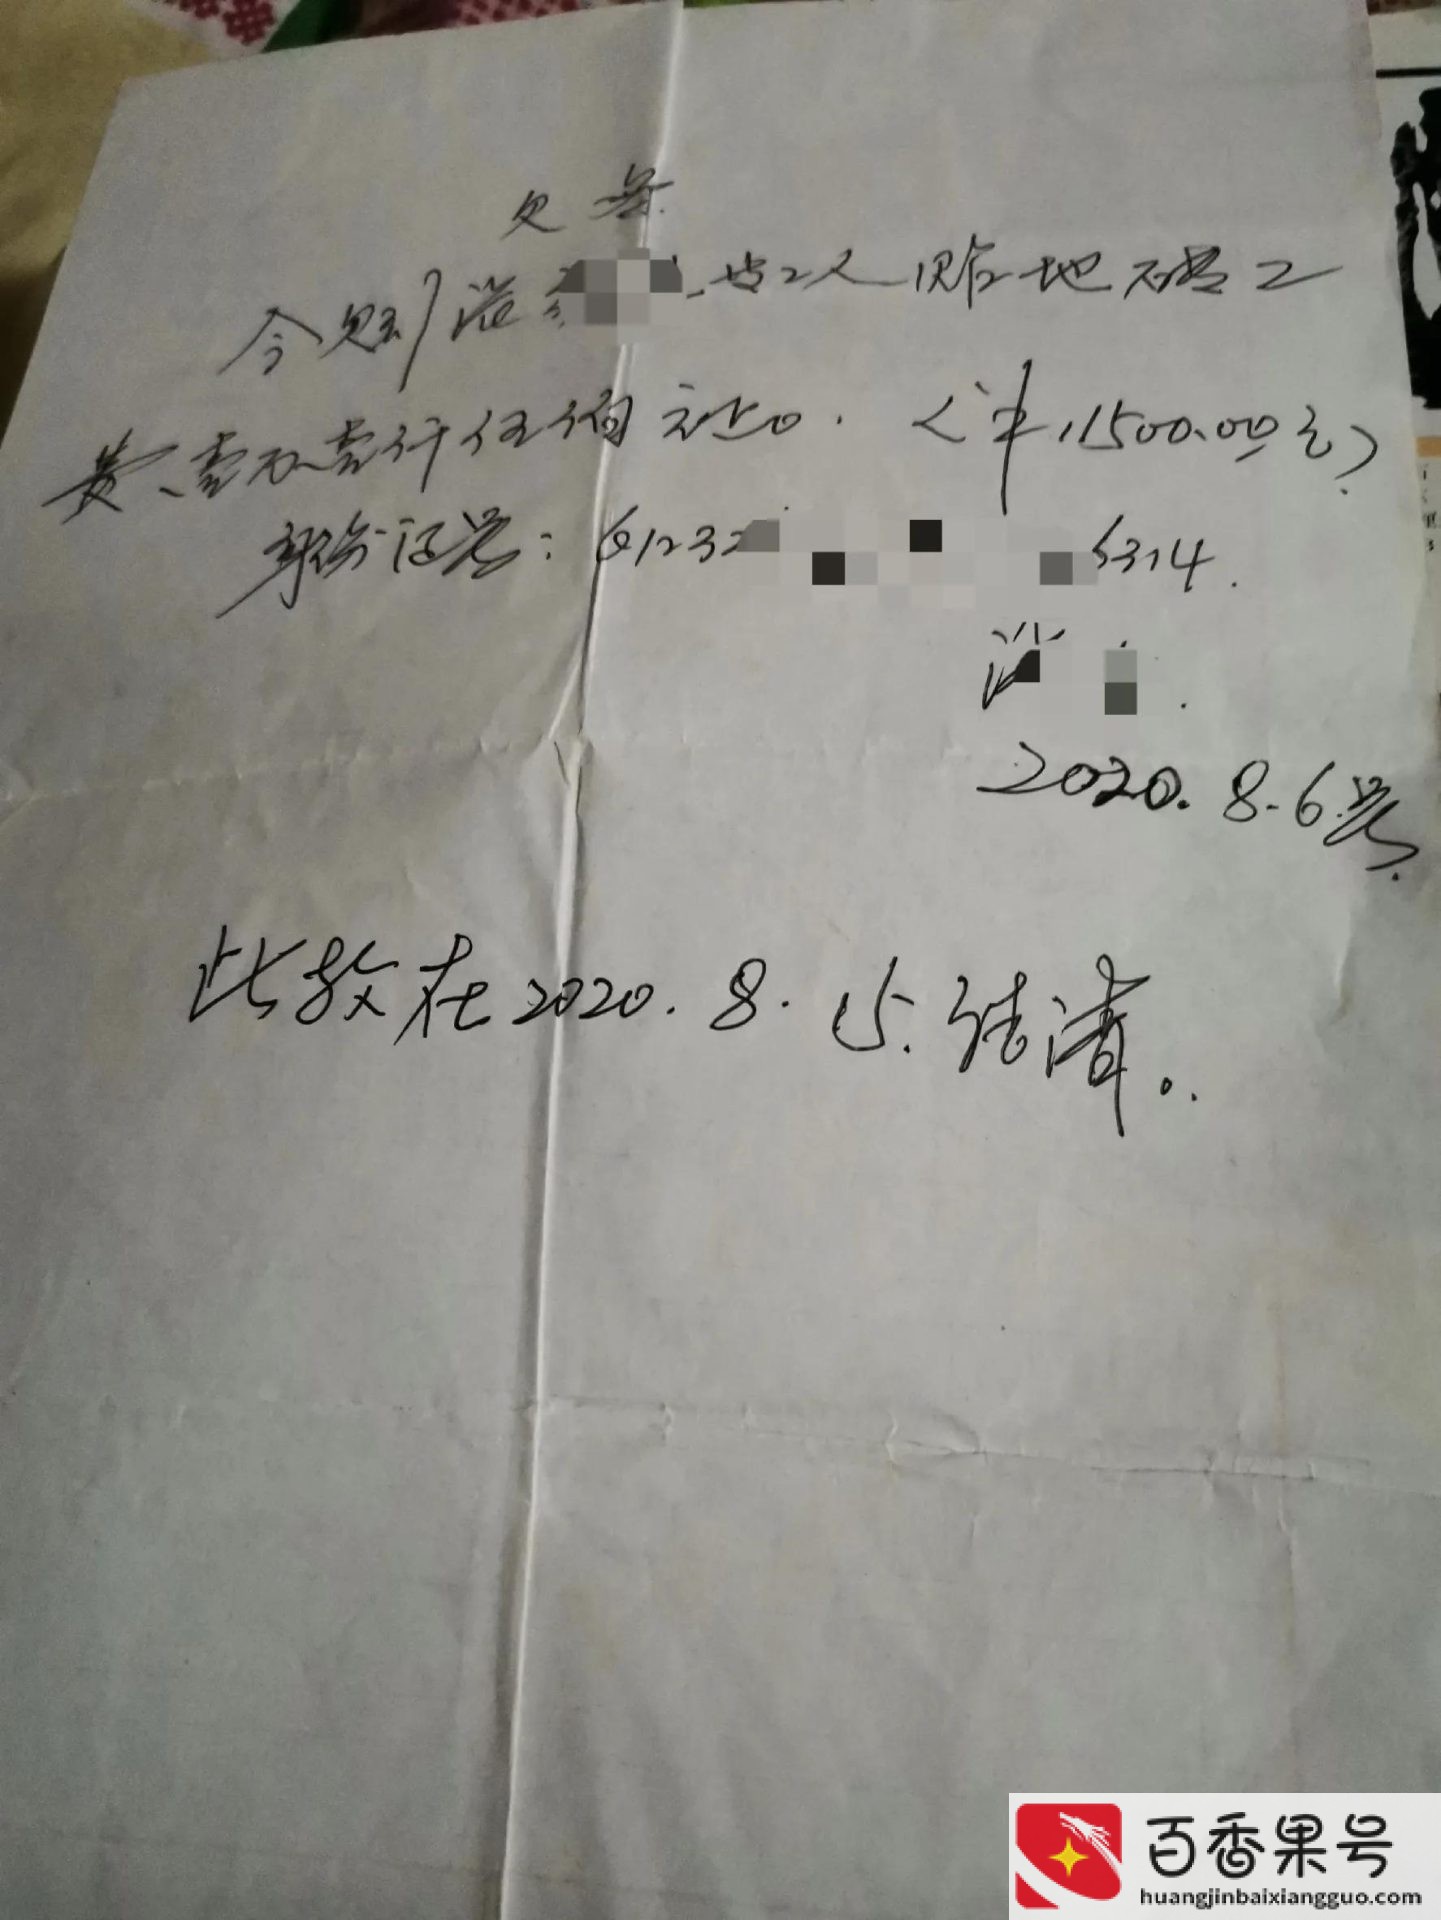 欠条
今欠到潘 等2人贴地砖工
资、壹万壹仟伍佰元正。(¥11500.00元)
身份证号:61232 5314.
潘
2020.8.6号.
此款在2020.8.15.结清。
百香果号
huangjinbaixiangguo.com